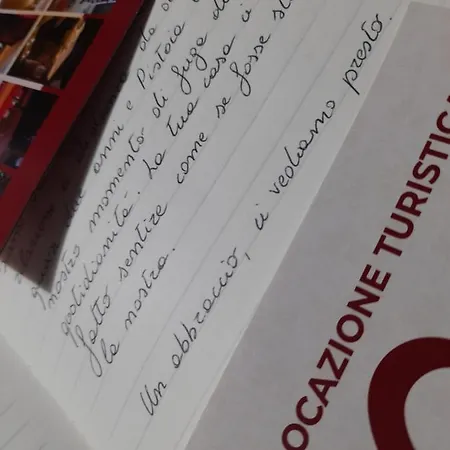 anni e Pistoia
nostro momento di fuga
quotidianità. La tua casa ci
fatto sentire come se fosse
la nostra.
Un abbraccio, ci vediamo presto.
OCAZIONE TURISTICA